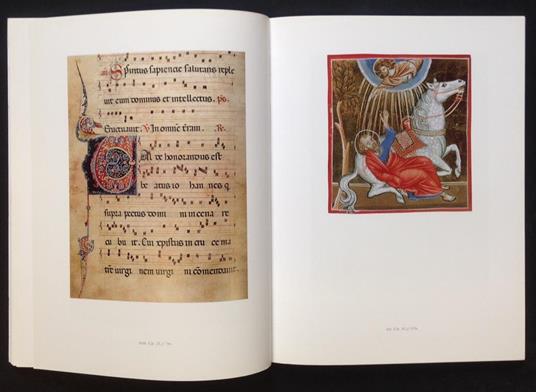 Spiritus sapiencie salutaris reple
uit eum dominus et intellectus. ps.
Eructauit. V In omnē teram. R.
alde honorandus est
be atus io han nes q
supra pectus domi ni in cena re
cu bu it. Cui xpistus in cru ce ma
trē uirgi nem uirgi ni cōmendauit.